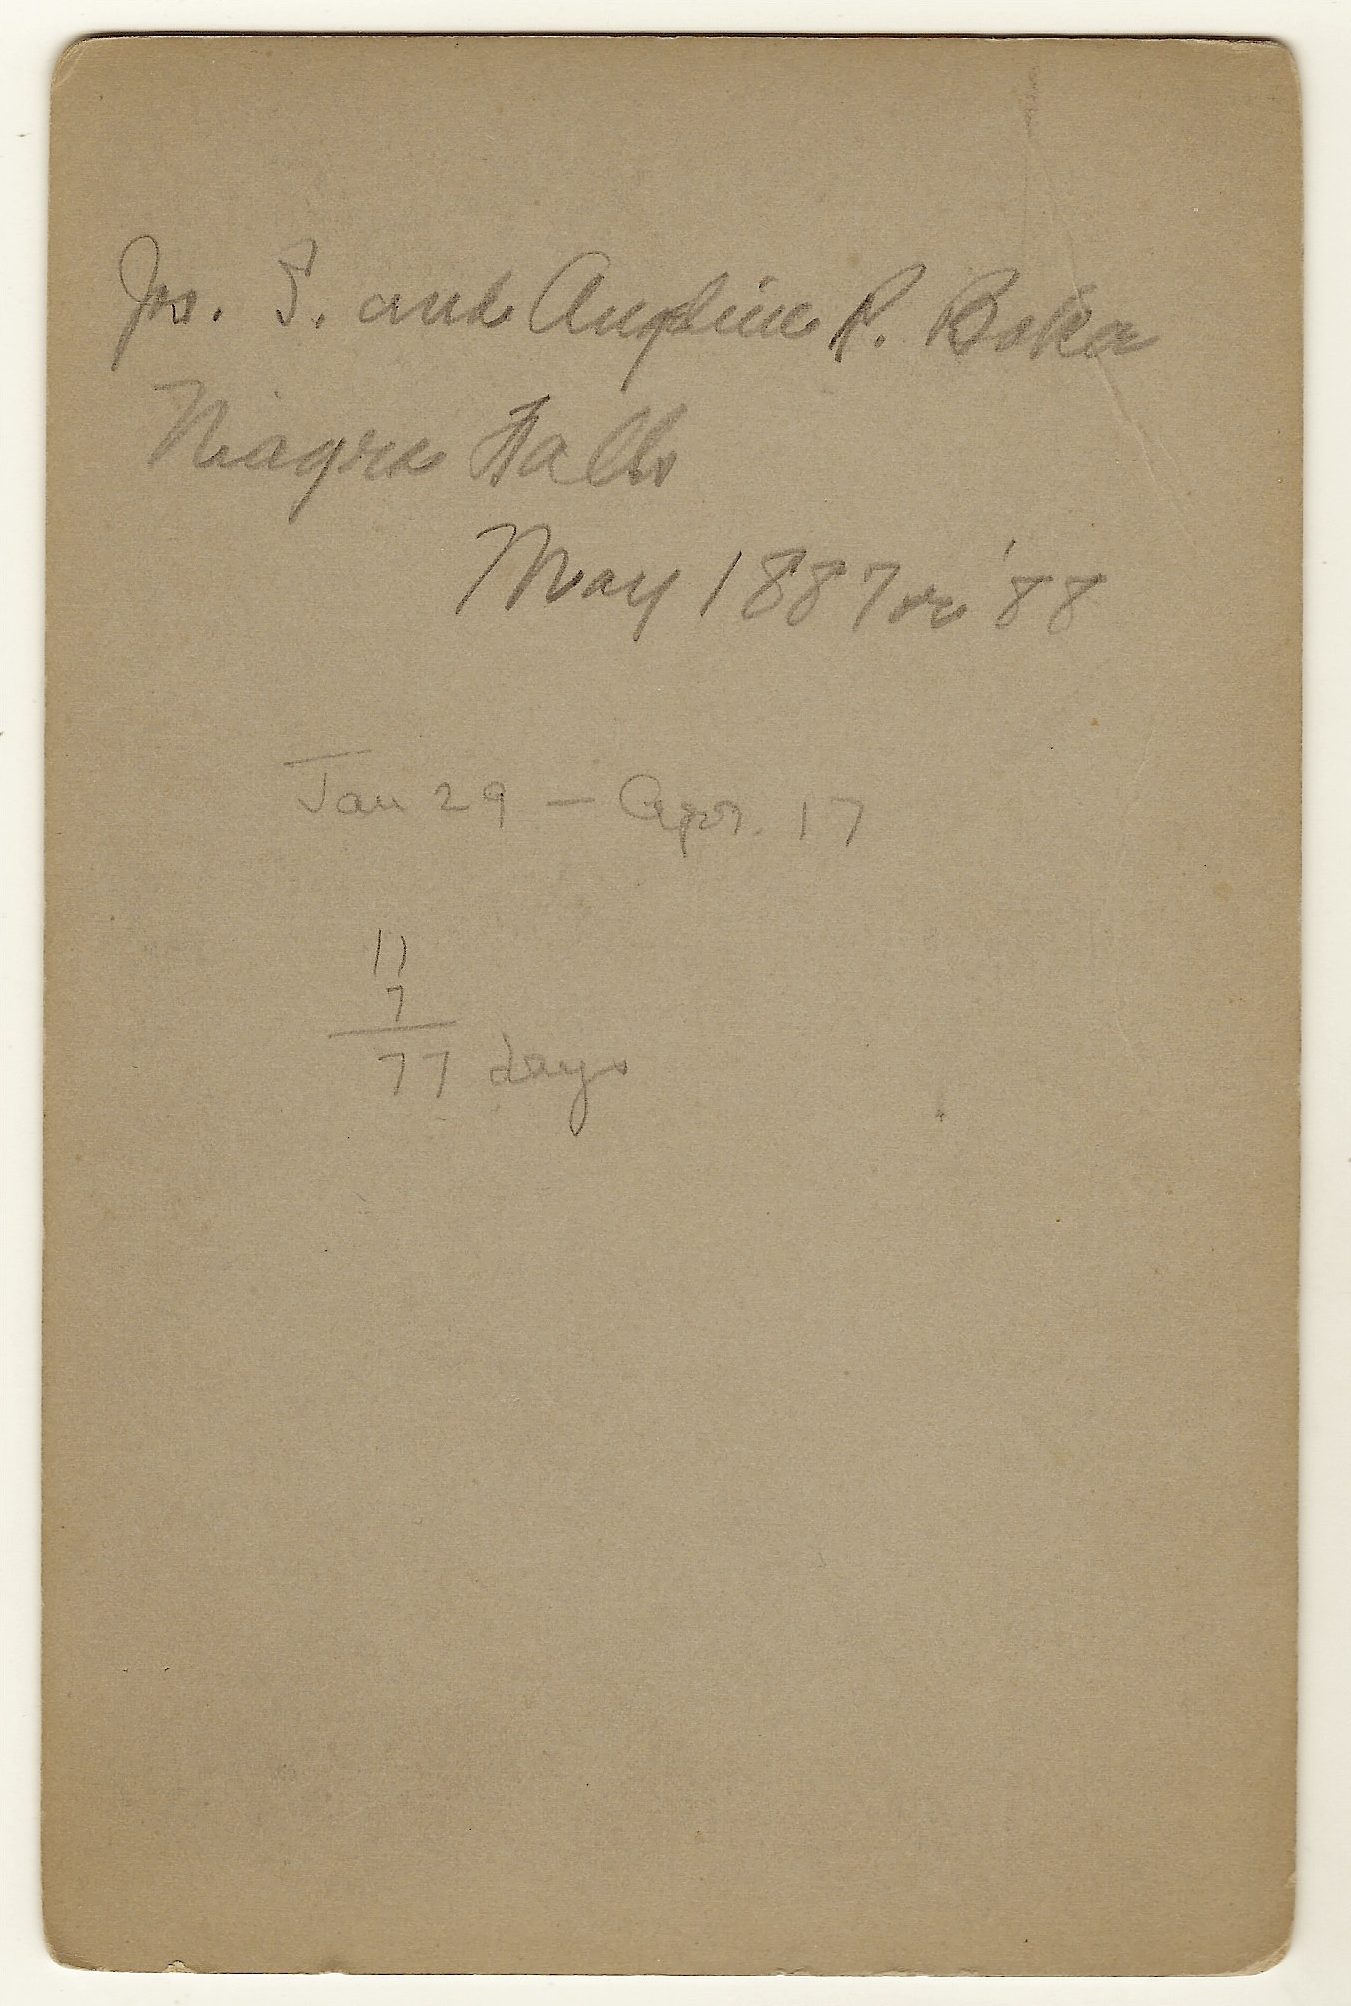 Jos. S. and Angeline R. Boka
Niagra Falls
May 1887 or '88
Jan 29 — Apr. 17
11
7
77 days